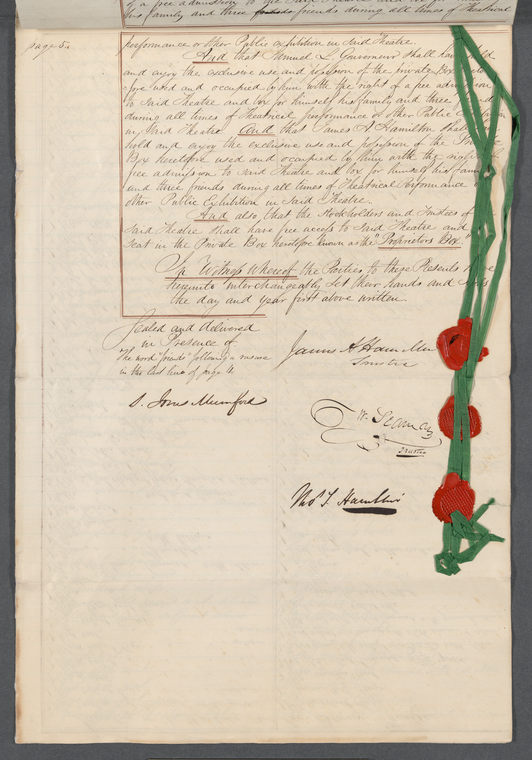 of a free admission to the said Theatre and box for
his family and three friends during all times of Theatrical
page 5.
performance or other Public exhibition in said Theatre.
And that Samuel L. Gouverneur shall have hold
and enjoy the exclusive use and possession of the private Box
fore used and occupied by him with the right of a free admission
to Said Theatre and box for himself his family and three
during all times of Theatrical performance or other Public
in Said Theatre And that James A Hamilton shall
hold and enjoy the exclusive use and possession of the
Box heretofore used and occupied by him with the right
free admission to Said Theatre and box for himself his family
and three friends during all times of Theatrical Performance
other Public Exhibition in Said Theatre.
And also, that the Stockholders and Trustees of
Said Theatre shall have free access to Said Theatre and
Seat in the Private Box heretofore known as the "Proprietors Box"
In Witness Whereof the Parties to these Presents have
hereunto interchangeably set their hands and
the day and year first above written.
Sealed and delivered
in Presence of
The word "friends" following erasure
in the last line of page 4
James A Hamilton
Trustee
S. Jones Mumford
Wm. Seaman
Trustee
Thos S. Hamblin